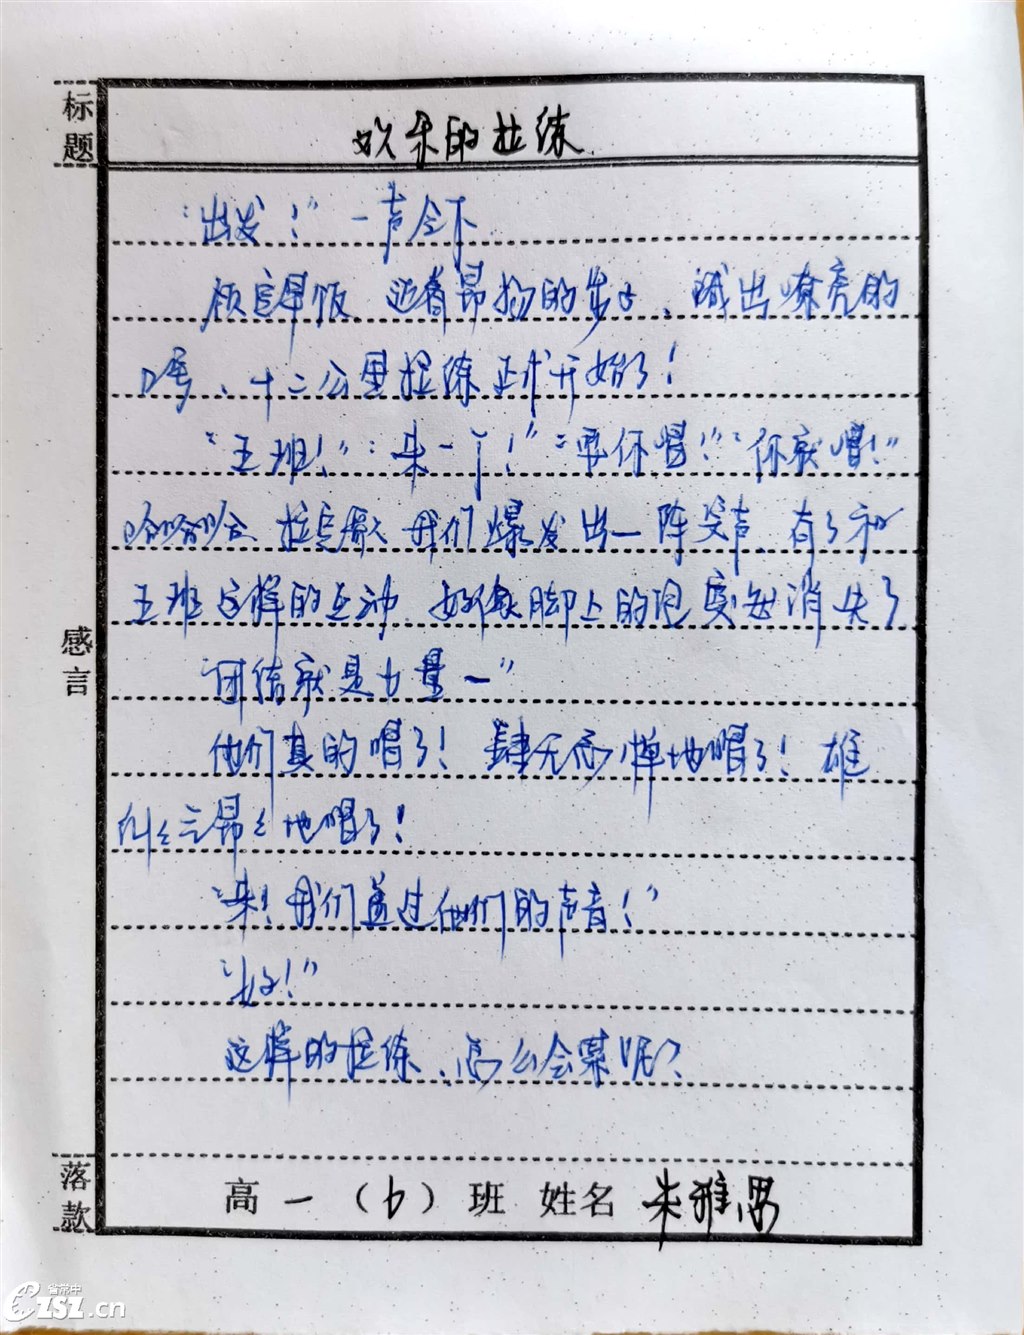 标题
欢乐的拉练
“出发！”一声令下
顾完早饭 迈着昂扬的步子、喊出嘹亮的
口号、十二公里拉练正式开始了！
“五班！”“来一个！”“要你唱！”“你就唱！”
哈哈哈 拉完歌 我们爆发出一阵笑声、有了和
五班这样的互动、好像脚上的泡突然消失了
感言
“团结就是力量一”
他们真的唱了！肆无忌惮地唱了！雄
纠纠气昂昂地唱了！
“来！我们盖过他们的声音！”
“好！”
这样的拉练、怎么会累呢？
落款
高一（6）班 姓名 朱雅思
省常中
CZSZ.cn